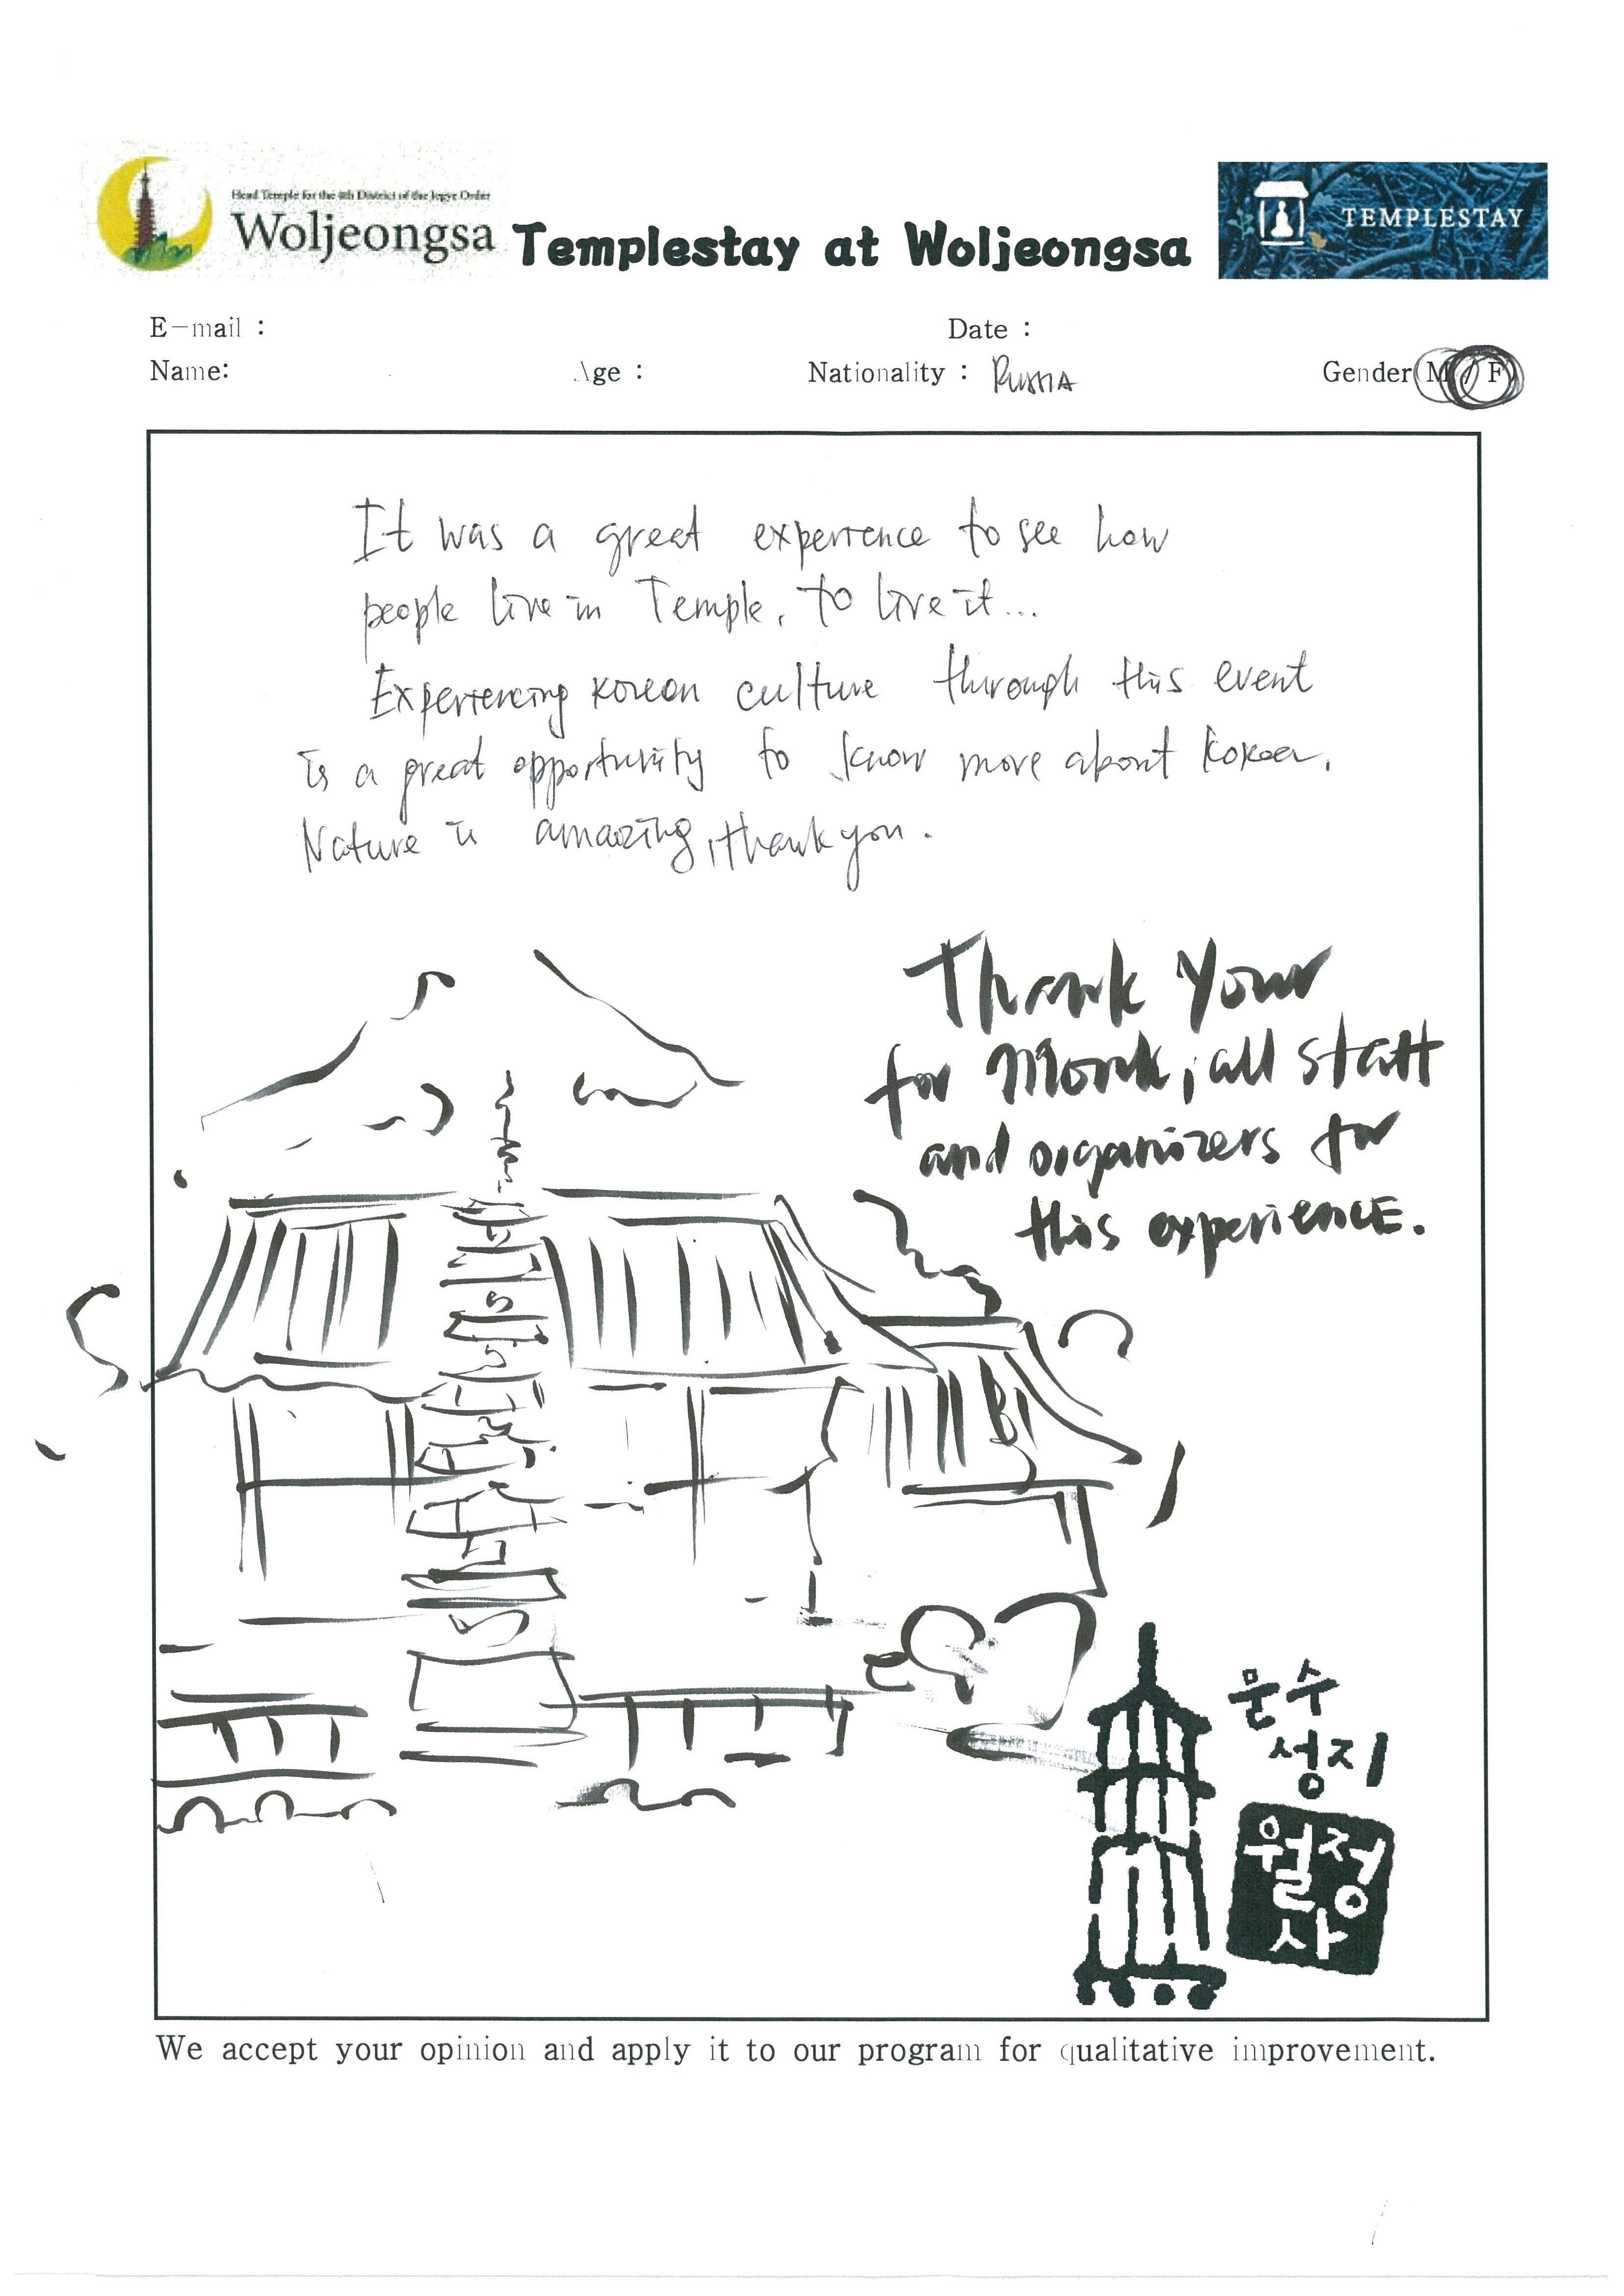 Head Temple for the 4th District of the Jogye Order
Woljeongsa
Templestay at Woljeongsa
TEMPLESTAY
E-mail :
Date :
Name:
Age :
Nationality : RUSSIA
Gender(M / F)
It was a great experience to see how
people live in Temple, to live it...
Experiencing Korean culture through this event
is a great opportunity to know more about Korea.
Nature is amazing, thank you.
Thank your
for Monk, all staff
and organizers for
this experience.
문수
성지
월정
사
We accept your opinion and apply it to our program for qualitative improvement.